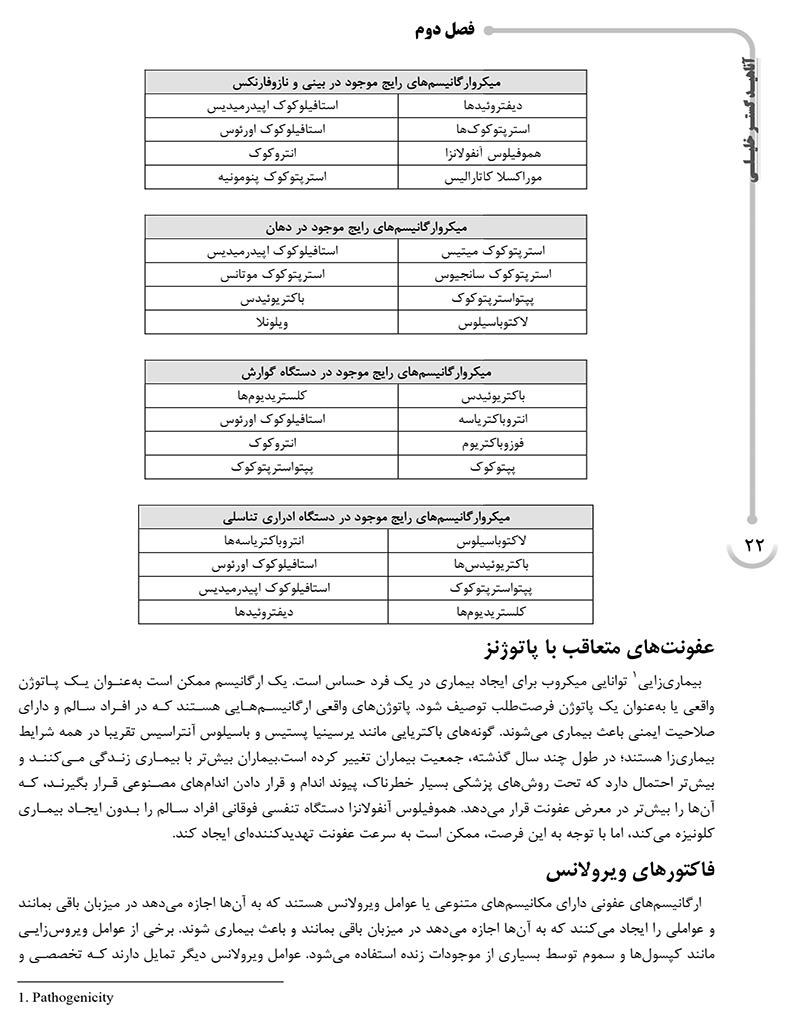 فصل دوم
آناهید گستر خلیلی
میکروارگانیسم‌های رایج موجود در بینی و نازوفارنکس
دیفتروئیدها استافیلوکوک اپیدرمیدیس
استرپتوکوک‌ها استافیلوکوک اورئوس
هموفیلوس آنفولانزا انتروکوک
موراکسلا کاتارالیس استرپتوکوک پنومونیه
میکروارگانیسم‌های رایج موجود در دهان
استرپتوکوک میتیس استافیلوکوک اپیدرمیدیس
استرپتوکوک سانجیوس استرپتوکوک موتانس
پپتواسترپتوکوک باکتریوئیدس
لاکتوباسیلوس ویلونلا
میکروارگانیسم‌های رایج موجود در دستگاه گوارش
باکتریوئیدس کلستریدیوم‌ها
انتروباکتریاسه استافیلوکوک اورئوس
فوزوباکتریوم انتروکوک
پپتوکوک پپتواسترپتوکوک
میکروارگانیسم‌های رایج موجود در دستگاه ادراری تناسلی
لاکتوباسیلوس انتروباکتریاسه‌ها
باکتریوئیدس‌ها استافیلوکوک اورئوس
پپتواسترپتوکوک استافیلوکوک اپیدرمیدیس
کلستریدیوم‌ها دیفتروئیدها
۲۲
عفونت‌های متعاقب با پاتوژنز
بیماری‌زایی۱ توانایی میکروب برای ایجاد بیماری در یک فرد حساس است. یک ارگانیسم ممکن است به‌عنوان یک پاتوژن
واقعی یا به‌عنوان یک پاتوژن فرصت‌طلب توصیف شود. پاتوژن‌های واقعی ارگانیسم‌هایی هستند که در افراد سالم و دارای
صلاحیت ایمنی باعث بیماری می‌شوند. گونه‌های باکتریایی مانند یرسینیا پستیس و باسیلوس آنتراسیس تقریبا در همه شرایط
بیماری‌زا هستند؛ در طول چند سال گذشته، جمعیت بیماران تغییر کرده است.بیماران بیش‌تر با بیماری زندگی می‌کنند و
بیش‌تر احتمال دارد که تحت روش‌های پزشکی بسیار خطرناک، پیوند اندام و قرار دادن اندام‌های مصنوعی قرار بگیرند، که
آن‌ها را بیش‌تر در معرض عفونت قرار می‌دهد. هموفیلوس آنفولانزا دستگاه تنفسی فوقانی افراد سالم را بدون ایجاد بیماری
کلونیزه می‌کند، اما با توجه به این فرصت، ممکن است به سرعت عفونت تهدیدکننده‌ای ایجاد کند.
فاکتورهای ویرولانس
ارگانیسم‌های عفونی دارای مکانیسم‌های متنوعی یا عوامل ویرولانس هستند که به آن‌ها اجازه می‌دهد در میزبان باقی بمانند
و عواملی را ایجاد می‌کنند که به آن‌ها اجازه می‌دهد در میزبان باقی بمانند و باعث بیماری شوند. برخی از عوامل ویروس‌زایی
مانند کپسول‌ها و سموم توسط بسیاری از موجودات زنده استفاده می‌شود. عوامل ویرولانس دیگر تمایل دارند که تخصصی و
1. Pathogenicity